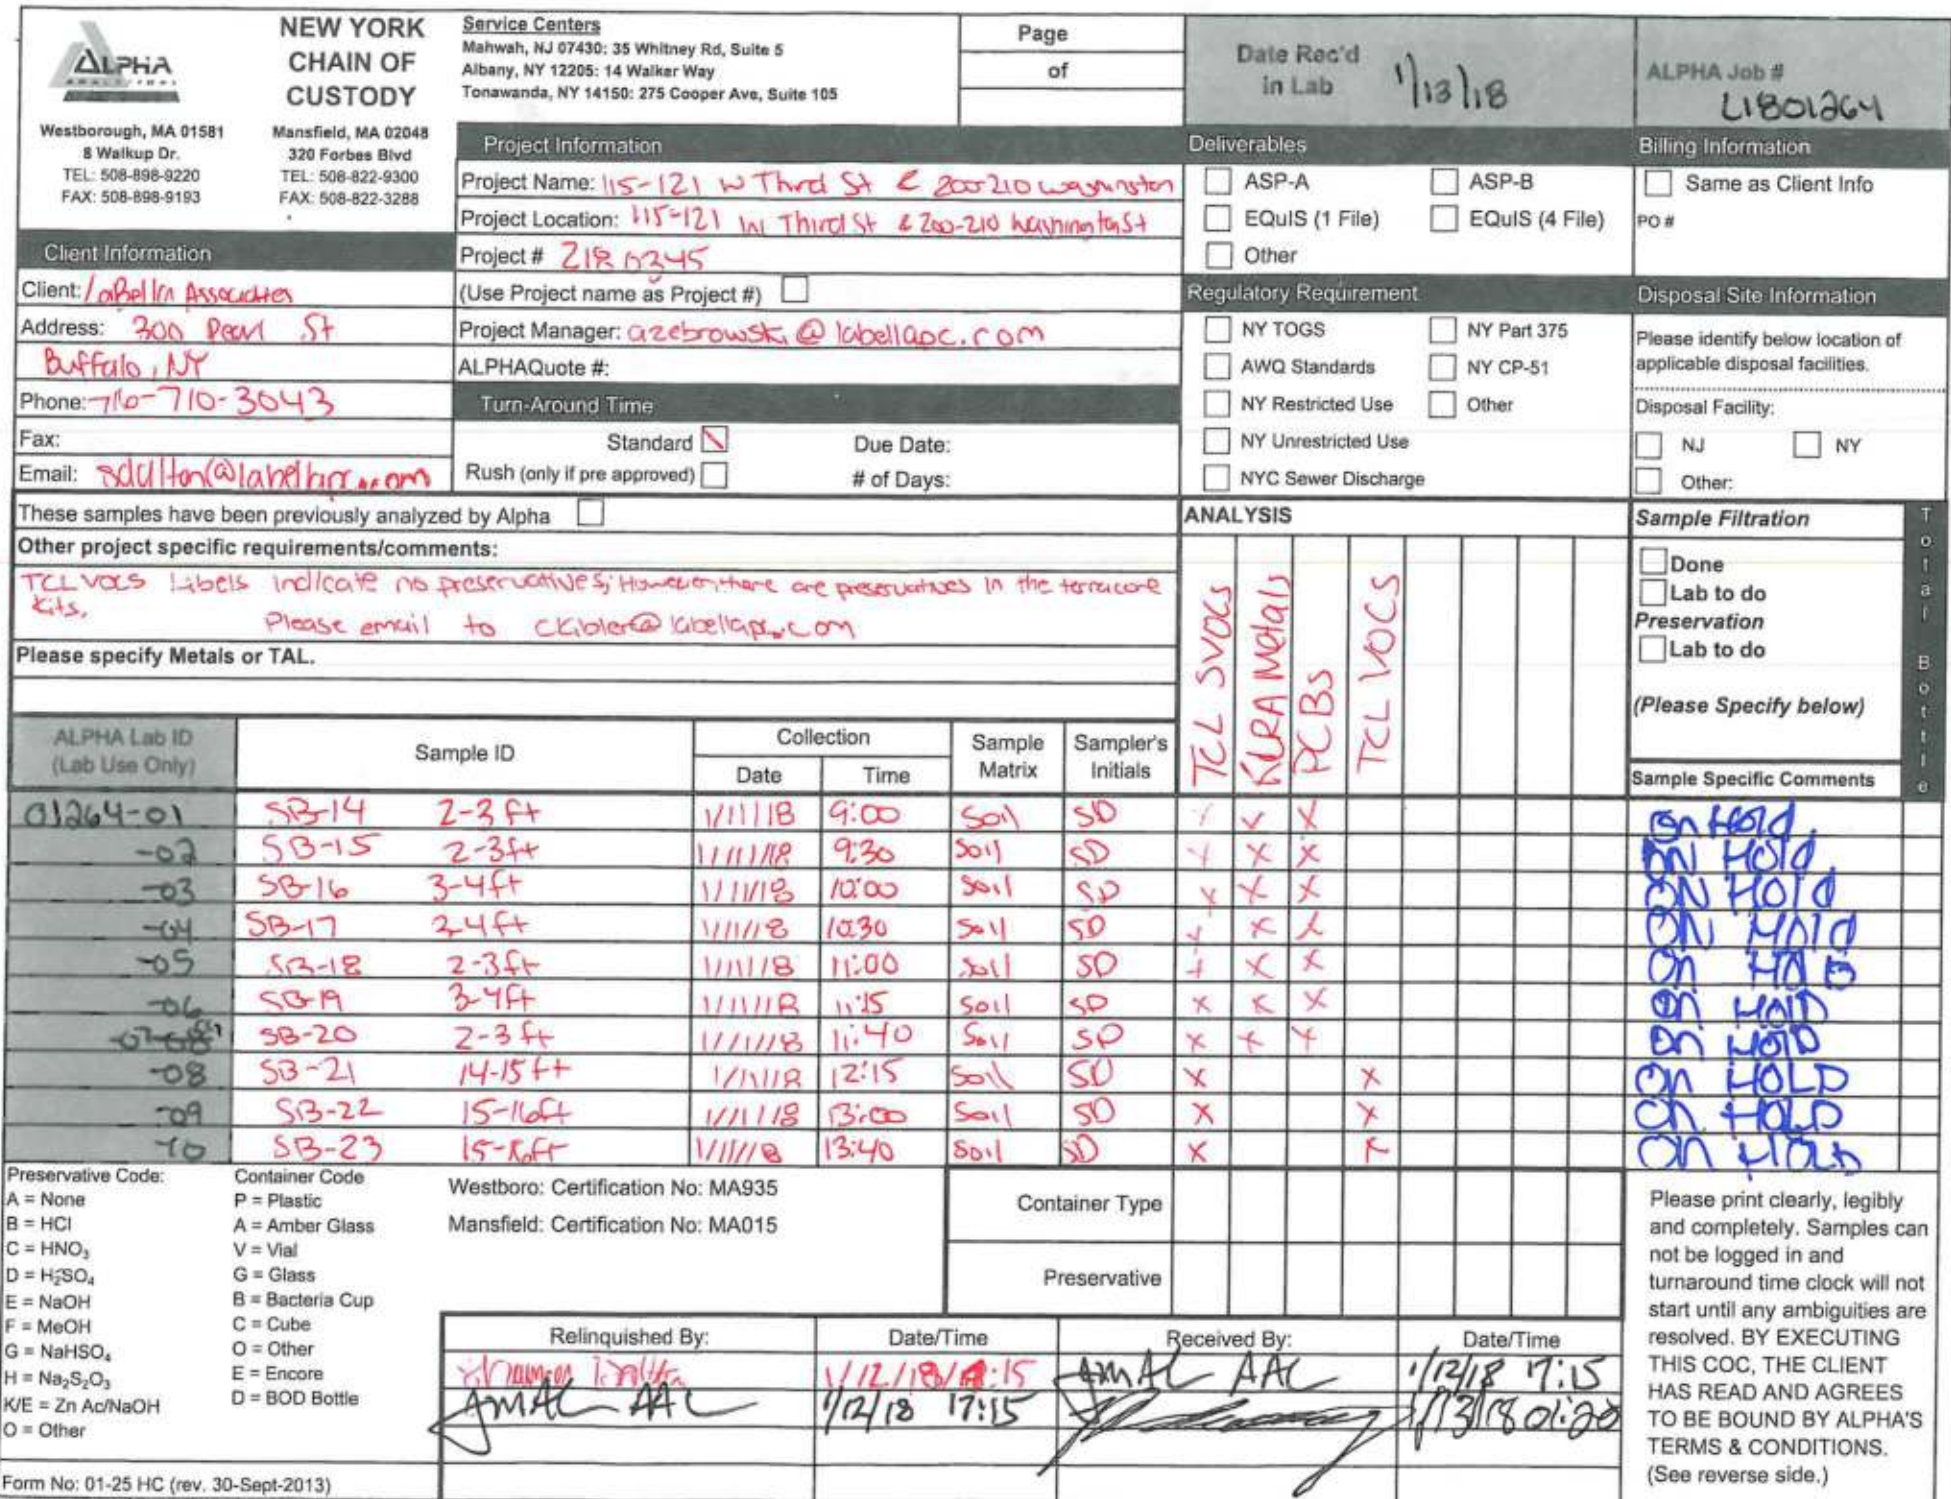 ALPHA
ANALYTICAL
NEW YORK
CHAIN OF
CUSTODY
Westborough, MA 01581
8 Walkup Dr.
TEL: 508-898-9220
FAX: 508-898-9193
Mansfield, MA 02048
320 Forbes Blvd
TEL: 508-822-9300
FAX: 508-822-3288
Service Centers
Mahwah, NJ 07430: 35 Whitney Rd, Suite 5
Albany, NY 12205: 14 Walker Way
Tonawanda, NY 14150: 275 Cooper Ave, Suite 105
Page
of
Date Rec'd in Lab 1/13/18
ALPHA Job # L1801264
Client Information
Client: LaBella Associates
Address: 300 Pearl St
Buffalo, NY
Phone: 716-710-3043
Fax:
Email:
Project Information
Project Name: 115-121 W Third St & 200-210 Washington
Project Location: 115-121 W Third St & 200-210 Washington St
Project # 2180345
(Use Project name as Project #)
Project Manager: azebrowski@labellapc.com
ALPHAQuote #:
Turn-Around Time
Standard Due Date:
Rush (only if pre approved) # of Days:
Deliverables
ASP-A ASP-B
EQuIS (1 File) EQuIS (4 File)
Other
Regulatory Requirement
NY TOGS NY Part 375
AWQ Standards NY CP-51
NY Restricted Use Other
NY Unrestricted Use
NYC Sewer Discharge
Billing Information
Same as Client Info
PO #
Disposal Site Information
Please identify below location of
applicable disposal facilities.
Disposal Facility:
NJ NY
Other:
These samples have been previously analyzed by Alpha
Other project specific requirements/comments:
TCL VOCS Labels indicate no preservatives; However, there are preservatives in the terracore
kits.
Please email to ckibler@labellapc.com
Please specify Metals or TAL.
ANALYSIS
TCL SVOCs
RCRA Metals
PCBs
TCL VOCS
Sample Filtration
Done
Lab to do
Preservation
Lab to do
(Please Specify below)
Total Bottle
ALPHA Lab ID
(Lab Use Only)
Sample ID
Collection
Date Time
Sample Matrix
Sampler's Initials
Sample Specific Comments
01264-01 SB-14 2-3 ft 1/11/18 9:00 Soil SD X X X On Hold
-02 SB-15 2-3ft 1/11/18 9:30 Soil SD X X X ON Hold
-03 SB-16 3-4ft 1/11/18 10:00 Soil SD X X X ON Hold
-04 SB-17 3-4ft 1/11/18 10:30 Soil SD X X X ON Hold
-05 SB-18 2-3ft 1/11/18 11:00 Soil SD X X X On HOLD
-06 SB-19 3-4ft 1/11/18 11:15 Soil SD X X X On HOLD
-07 SB-20 2-3ft 1/11/18 11:40 Soil SD X X X On HOLD
-08 SB-21 14-15ft 1/11/18 12:15 Soil SD X X On HOLD
-09 SB-22 15-16ft 1/11/18 13:00 Soil SD X X On HOLD
-10 SB-23 15-16ft 1/11/18 13:40 Soil SD X X On HOLD
Preservative Code:
A = None
B = HCl
C = HNO3
D = H2SO4
E = NaOH
F = MeOH
G = NaHSO4
H = Na2S2O3
K/E = Zn Ac/NaOH
O = Other
Container Code
P = Plastic
A = Amber Glass
V = Vial
G = Glass
B = Bacteria Cup
C = Cube
O = Other
E = Encore
D = BOD Bottle
Westboro: Certification No: MA935
Mansfield: Certification No: MA015
Container Type
Preservative
Relinquished By: Date/Time Received By: Date/Time
1/12/18 AAC 1/12/18 17:15
AAC 1/12/18 17:15 1/13/18 01:20
Please print clearly, legibly
and completely. Samples can
not be logged in and
turnaround time clock will not
start until any ambiguities are
resolved. BY EXECUTING
THIS COC, THE CLIENT
HAS READ AND AGREES
TO BE BOUND BY ALPHA'S
TERMS & CONDITIONS.
(See reverse side.)
Form No: 01-25 HC (rev. 30-Sept-2013)